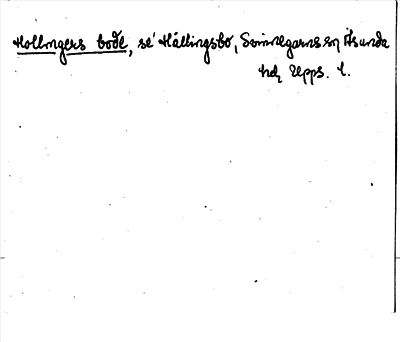 Hollingers bode, se Hällingsbo, Svinnegarns sn, Åsunda
hd, Upps. l.